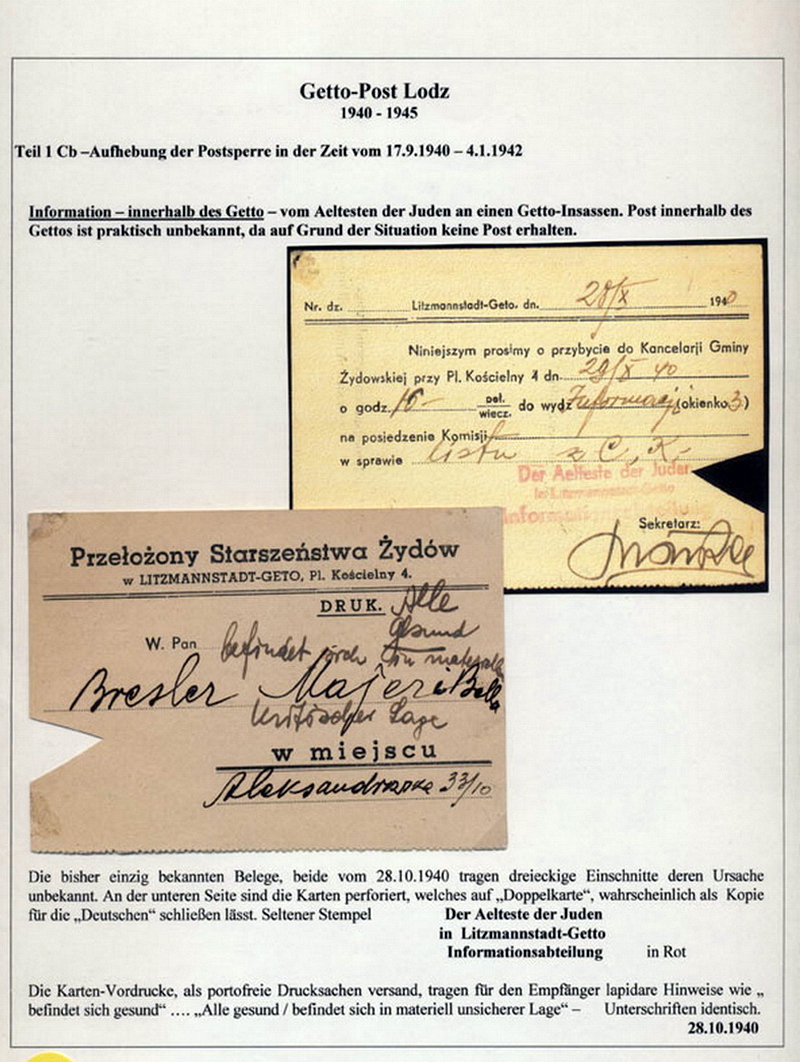 Getto-Post Lodz
1940 - 1945
Teil 1 Cb –Aufhebung der Postsperre in der Zeit vom 17.9.1940 – 4.1.1942
Information – innerhalb des Getto – vom Aeltesten der Juden an einen Getto-Insassen. Post innerhalb des
Gettos ist praktisch unbekannt, da auf Grund der Situation keine Post erhalten.
Nr. dz. Litzmannstadt-Geto. dn. 28/X 1940
Niniejszym prosimy o przybycie do Kancelarji Gminy
Żydowskiej przy Pl. Kościelny 4 dn. 29/X 40
o godz. 16- poł. wiecz. do wydz Informacji (okienko 3)
na posiedzenie Komisji
w sprawie listu z C. K.
Der Aelteste der Juden
in Litzmannstadt-Getto
Informationsabteilung
Sekretarz:
Przełożony Starszeństwa Żydów
w LITZMANNSTADT-GETO, Pl. Kościelny 4.
DRUK. Alle
gesund
W. Pan befindet sich in
Bresler Majer i Bella
kritischer Lage
w miejscu
Aleksandrowska 33/10
Die bisher einzig bekannten Belege, beide vom 28.10.1940 tragen dreieckige Einschnitte deren Ursache
unbekannt. An der unteren Seite sind die Karten perforiert, welches auf „Doppelkarte“, wahrscheinlich als Kopie
für die „Deutschen“ schließen lässt. Seltener Stempel Der Aelteste der Juden
in Litzmannstadt-Getto
Informationsabteilung in Rot
Die Karten-Vordrucke, als portofreie Drucksachen versand, tragen für den Empfänger lapidare Hinweise wie „
befindet sich gesund“ …. „Alle gesund / befindet sich in materiell unsicherer Lage“ – Unterschriften identisch.
28.10.1940